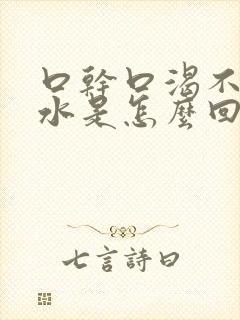 口幹口渴不
水是怎麼回
七言詩曰